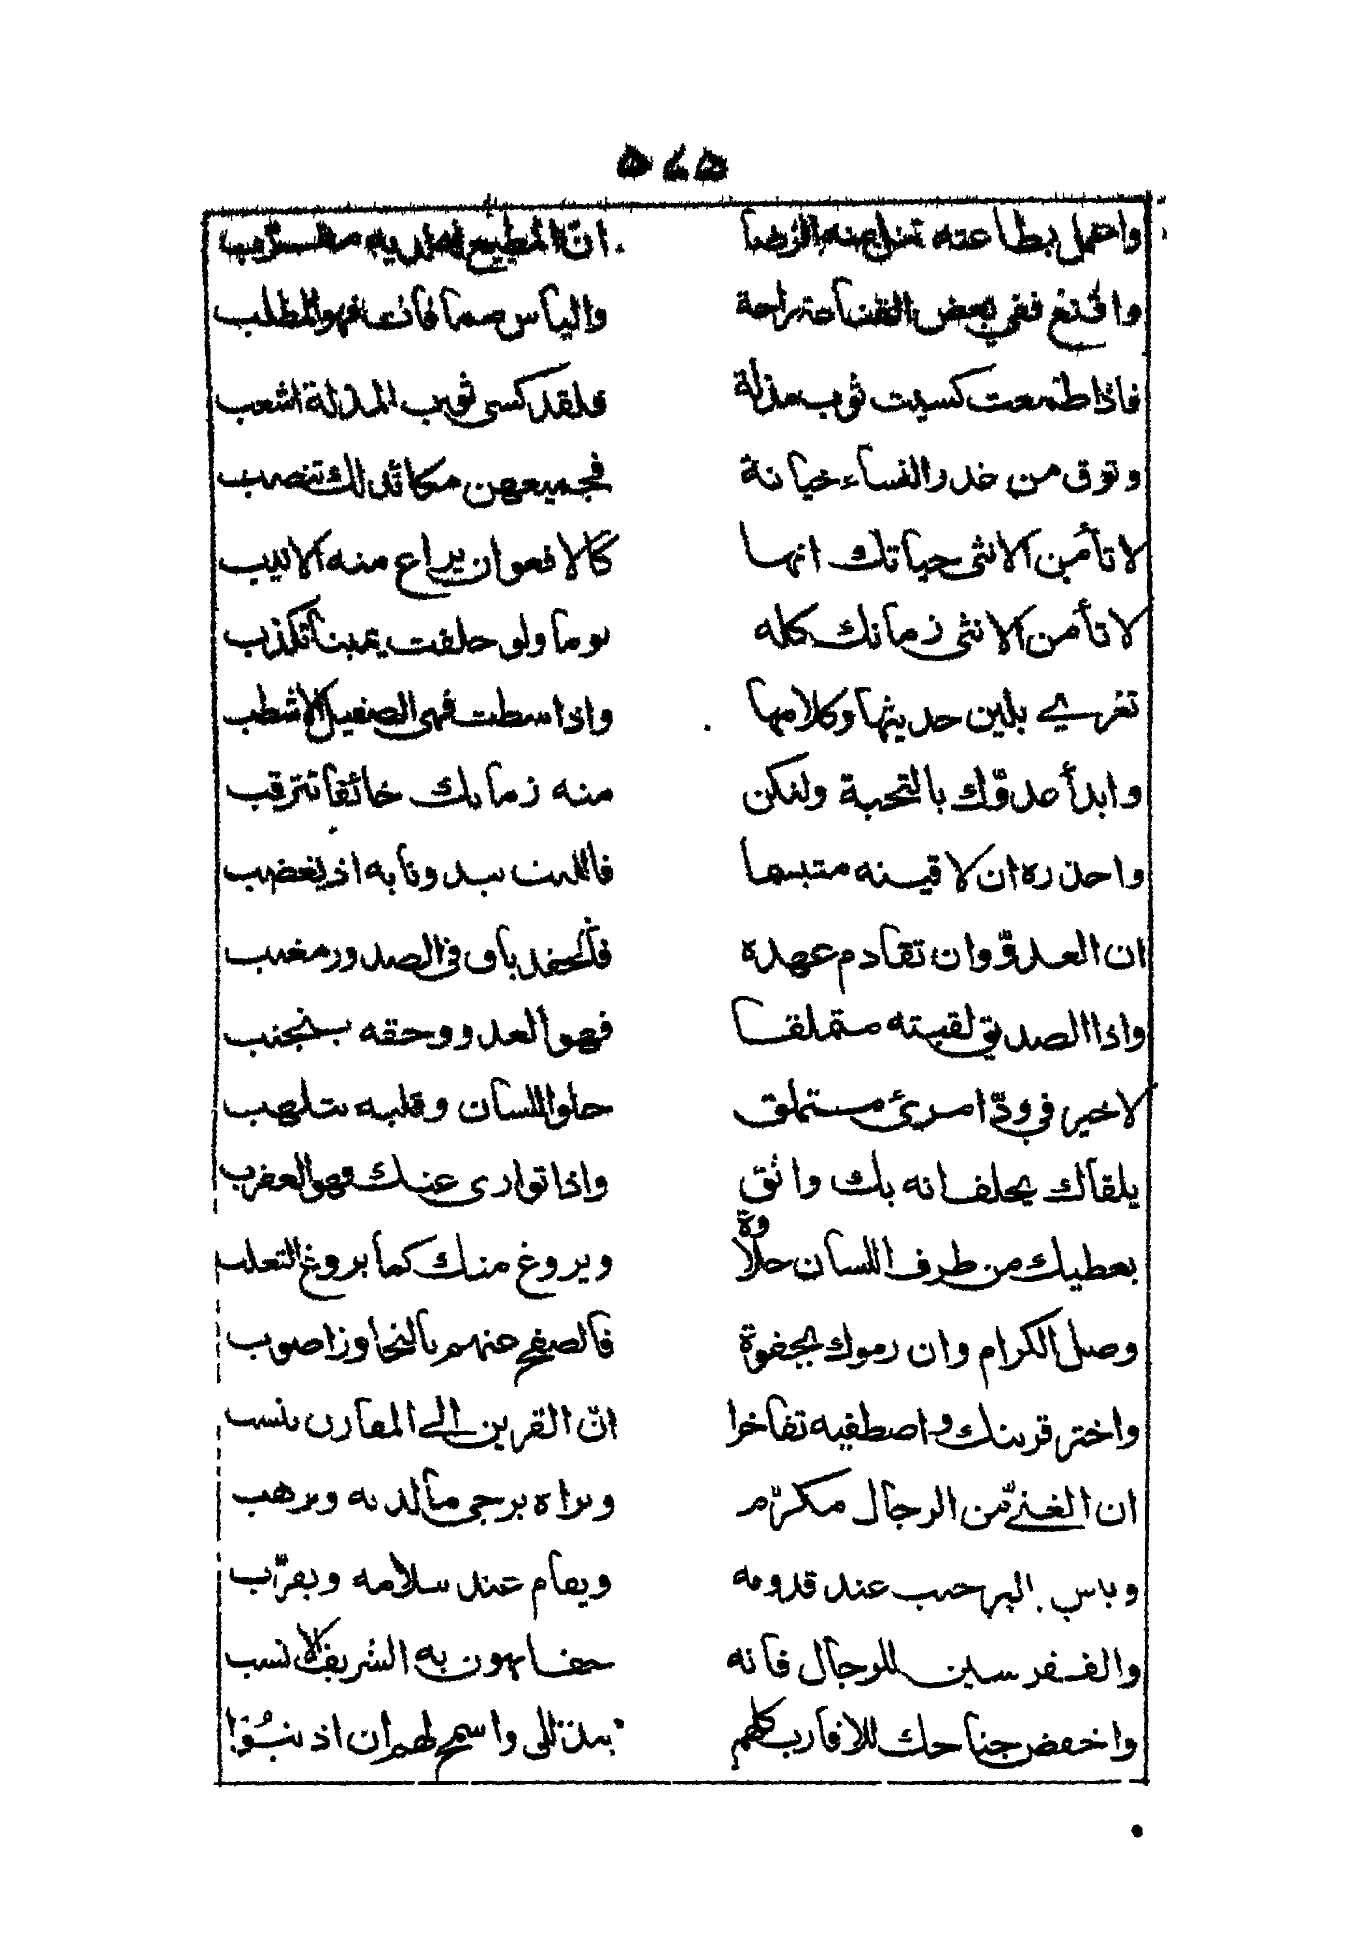 ٥٤٥
واعمل بطاعته تنل منه الرضا ان المطيع لديه مقرب
واقنع ففي بعض القناعة راحة والياس مما فات فهو المطلب
فاذا طمعت كسيت ثوب مذلة فلقد كسى ثوب المذلة اشعب
وتوق من غدر النساء خيانة فجميعهن مكائد لك تنصب
لا تأمن الانثى حياتك انها كالافعوان يراع منه الانيب
لا تأمن الانثى زمانك كله يوما ولو حلفت يمينا تكذب
تغرى بلين حديثها وكلامها واذا سطت فهى الصقيل الاشطب
وابدأ عدوّك بالتحية ولتكن منه زمانك خائفا تترقب
واحذره ان لاقيته متبسما فالليث يبدو نابه اذ يغضب
ان العدوّ وان تقادم عهده فالحقد باق فى الصدور مغيب
واذا الصديق لقيته متملقا فهو العدو وحقه يتجنب
لا خير في ودّ امرئ متملق حلو اللسان وقلبه يتلهب
يلقاك يحلف انه بك واثق واذا توارى عنك فهو العقرب
يعطيك من طرف اللسان حلاوة ويروغ منك كما يروغ الثعلب
وصل الكرام وان رموك بجفوة فالصفح عنهم بالتجاوز اصوب
واختر قرينك واصطفيه تفاخرا انّ القرين الى المقارن ينسب
ان الغنى من الرجال مكرّم وتراه يرجى ما لديه ويرهب
ويبش بالترحيب عند قدومه ويقام عند سلامه ويقرّب
والفقر شين للرجال فانه حقا يهون به الشريف الانسب
واخفض جناحك للاقارب كلهم بتذلل واسمح لهم ان اذنبُوا